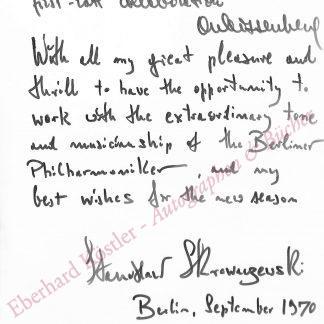 first-rate collaboration
With all my great pleasure and
thrill to have the opportunity to
work with the extraordinary tone
and musicianship of the Berliner
Philharmoniker, and my
best wishes for the new season
Stanislaw Skrowaczewski
Berlin, September 1970
Eberhard Köstler - Autographen & Bücher